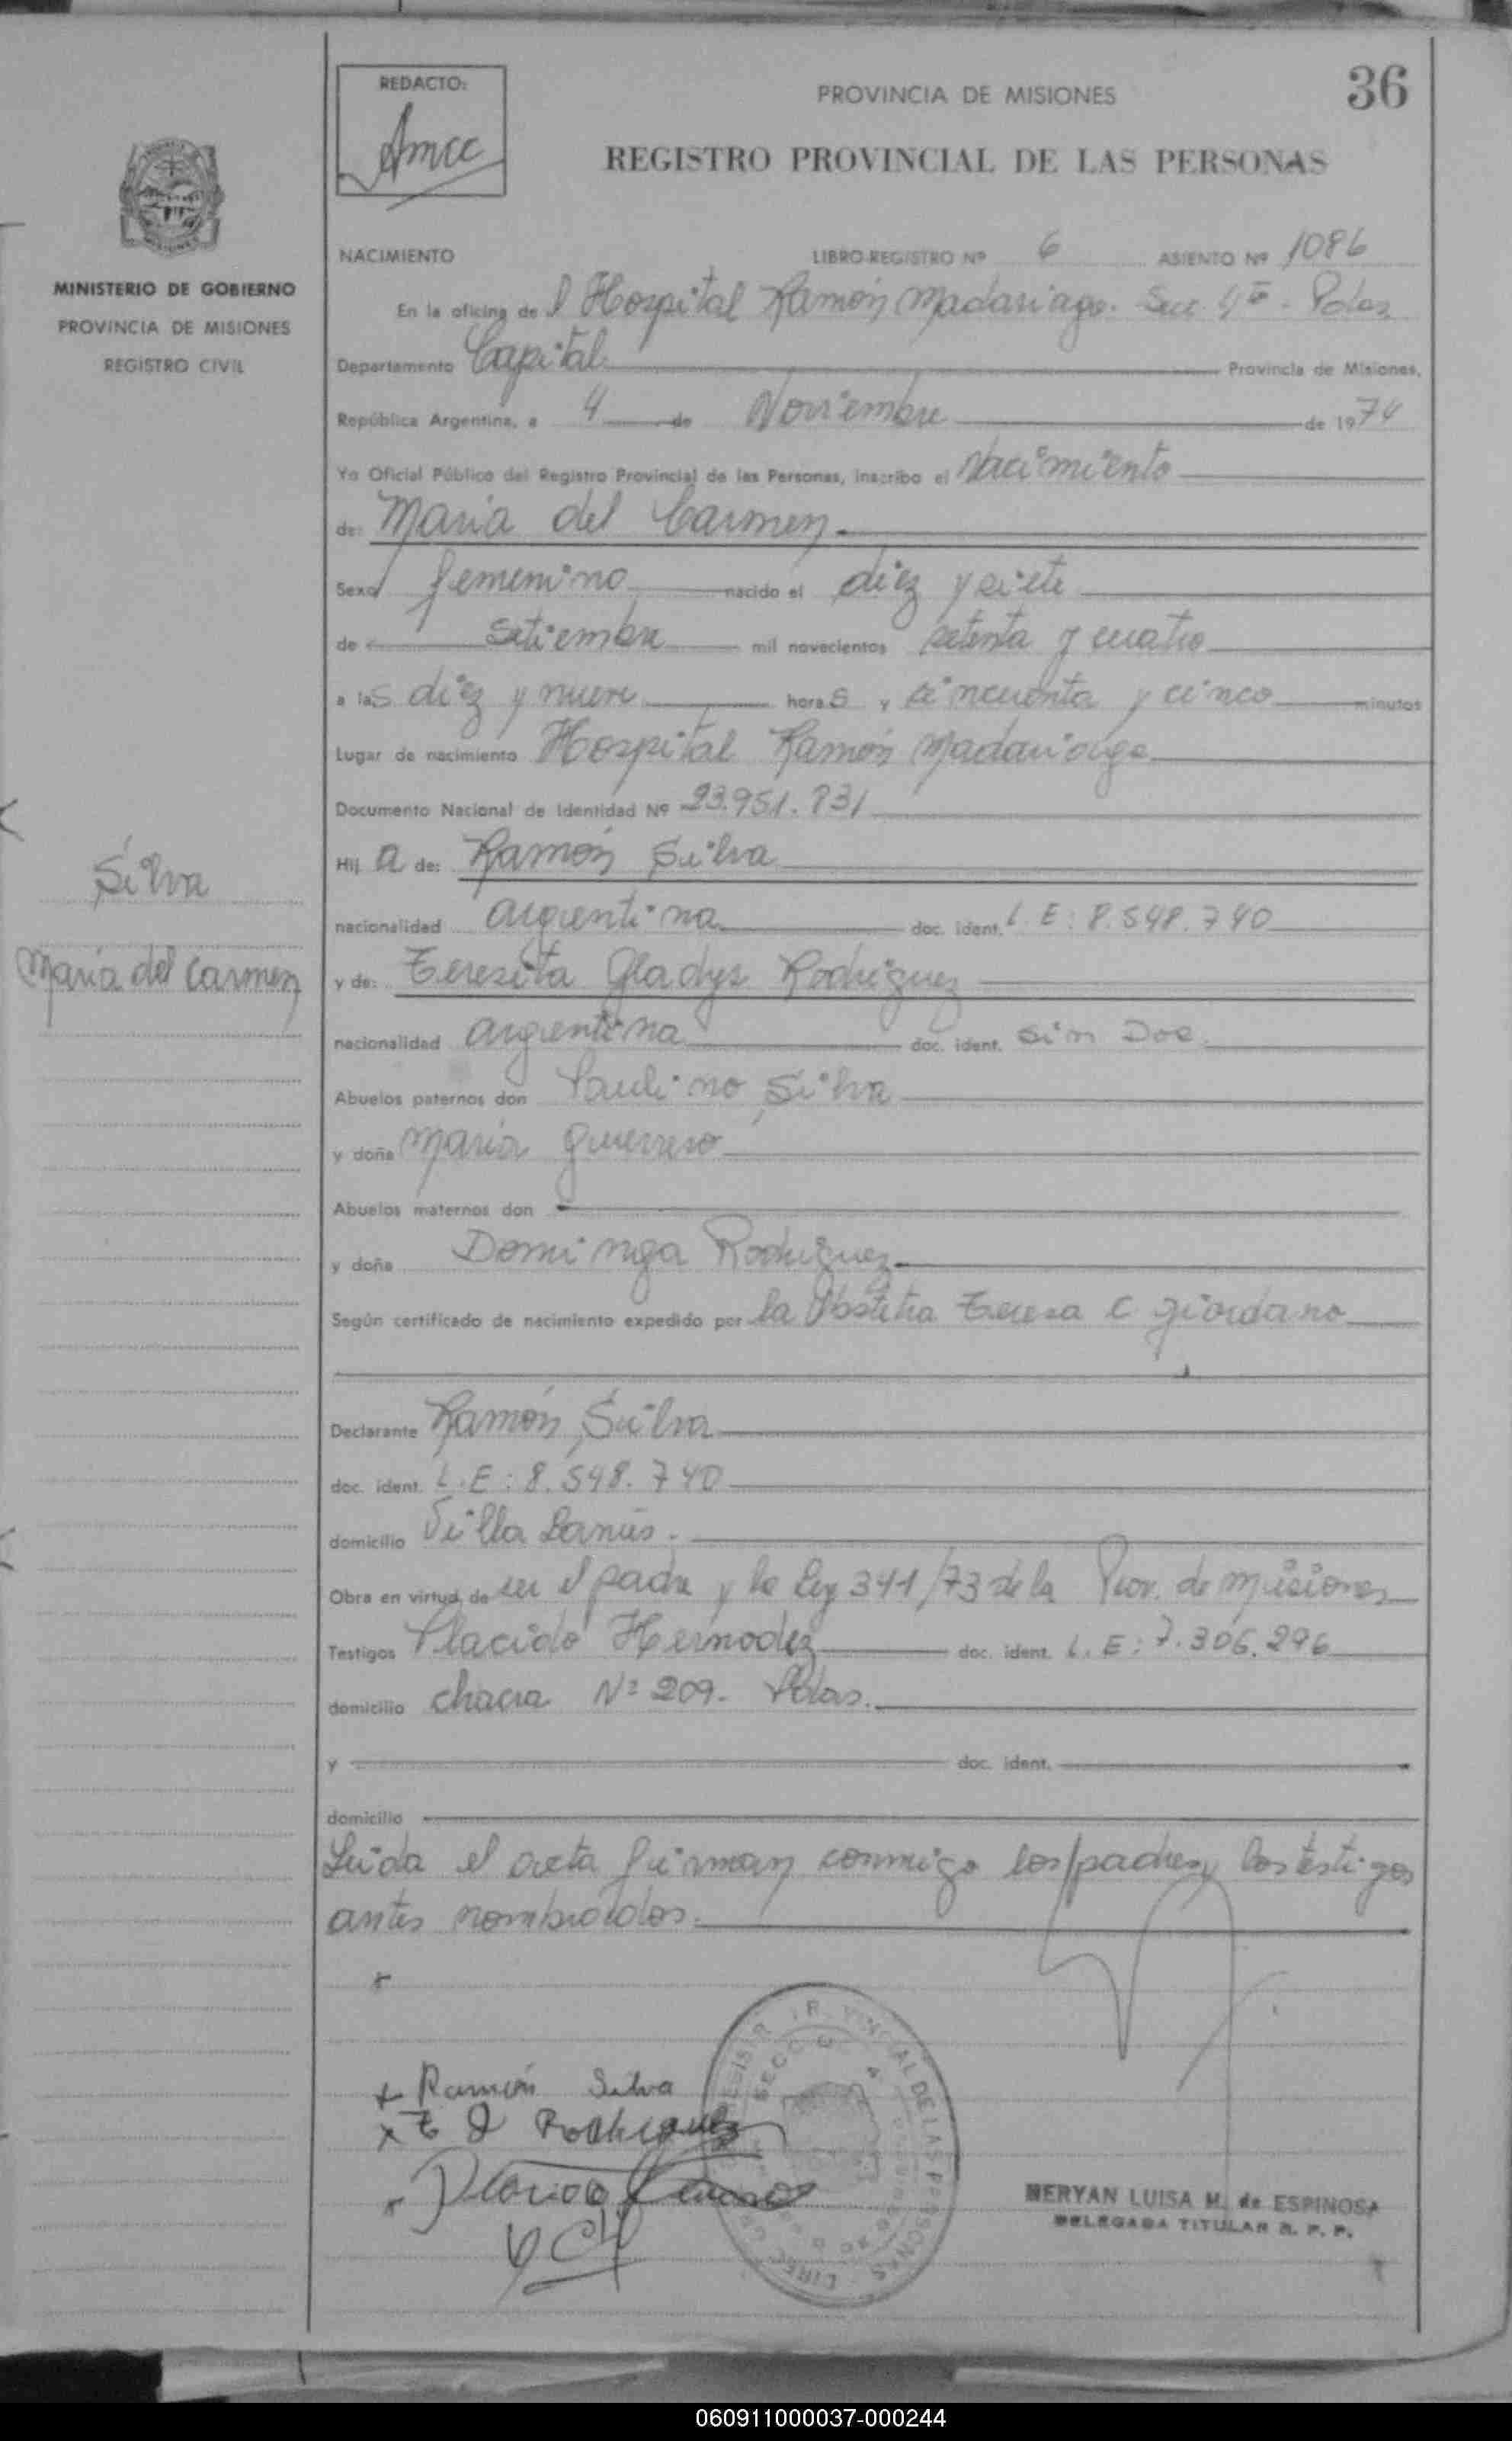 36
REDACTO:
Amcc
PROVINCIA DE MISIONES
REGISTRO PROVINCIAL DE LAS PERSONAS
MINISTERIO DE GOBIERNO
PROVINCIA DE MISIONES
REGISTRO CIVIL
NACIMIENTO LIBRO-REGISTRO Nº 6 ASIENTO Nº 1086
En la oficina de l Hospital Ramón Madariaga. Secc. 4ta - Pdas
Departamento Capital Provincia de Misiones,
República Argentina, a 4 de Noviembre de 1974
Yo Oficial Público del Registro Provincial de las Personas, inscribo el Nacimiento
de: Maria del Carmen
Sexo femenino nacido el diez y siete
de setiembre mil novecientos setenta y cuatro
a las diez y nueve horas y cincuenta y cinco minutos
Lugar de nacimiento Hospital Ramón Madariaga
Documento Nacional de Identidad Nº 23.951.831
Hij a de: Ramón Silva
Silva
nacionalidad argentina doc. ident. L.E: 8.548.740
Maria del Carmen
y de: Teresita Gladys Rodriguez
nacionalidad argentina doc. ident. sin Doc.
Abuelos paternos don Paulino Silva
y doña Maria Guerrero
Abuelos maternos don
y doña Dominga Rodriguez
Según certificado de nacimiento expedido por la Obstetra Teresa C Giordano
Declarante Ramón Silva
doc. ident. L.E: 8.548.740
domicilio Villa Lanús.
Obra en virtud de ser el padre y la Ley 341/73 de la Prov. de Misiones
Testigos Placido Hernodez doc. ident. L.E: 7.306.296
domicilio chacra Nº 209- Pdas.
y doc. ident.
domicilio
Leida el acta firman conmigo los padres y los testigos
antes nombrados.
x Ramón Silva
x T G Rodriguez
MERYAN LUISA M. de ESPINOSA
DELEGADA TITULAR R. P. P.
060911000037-000244